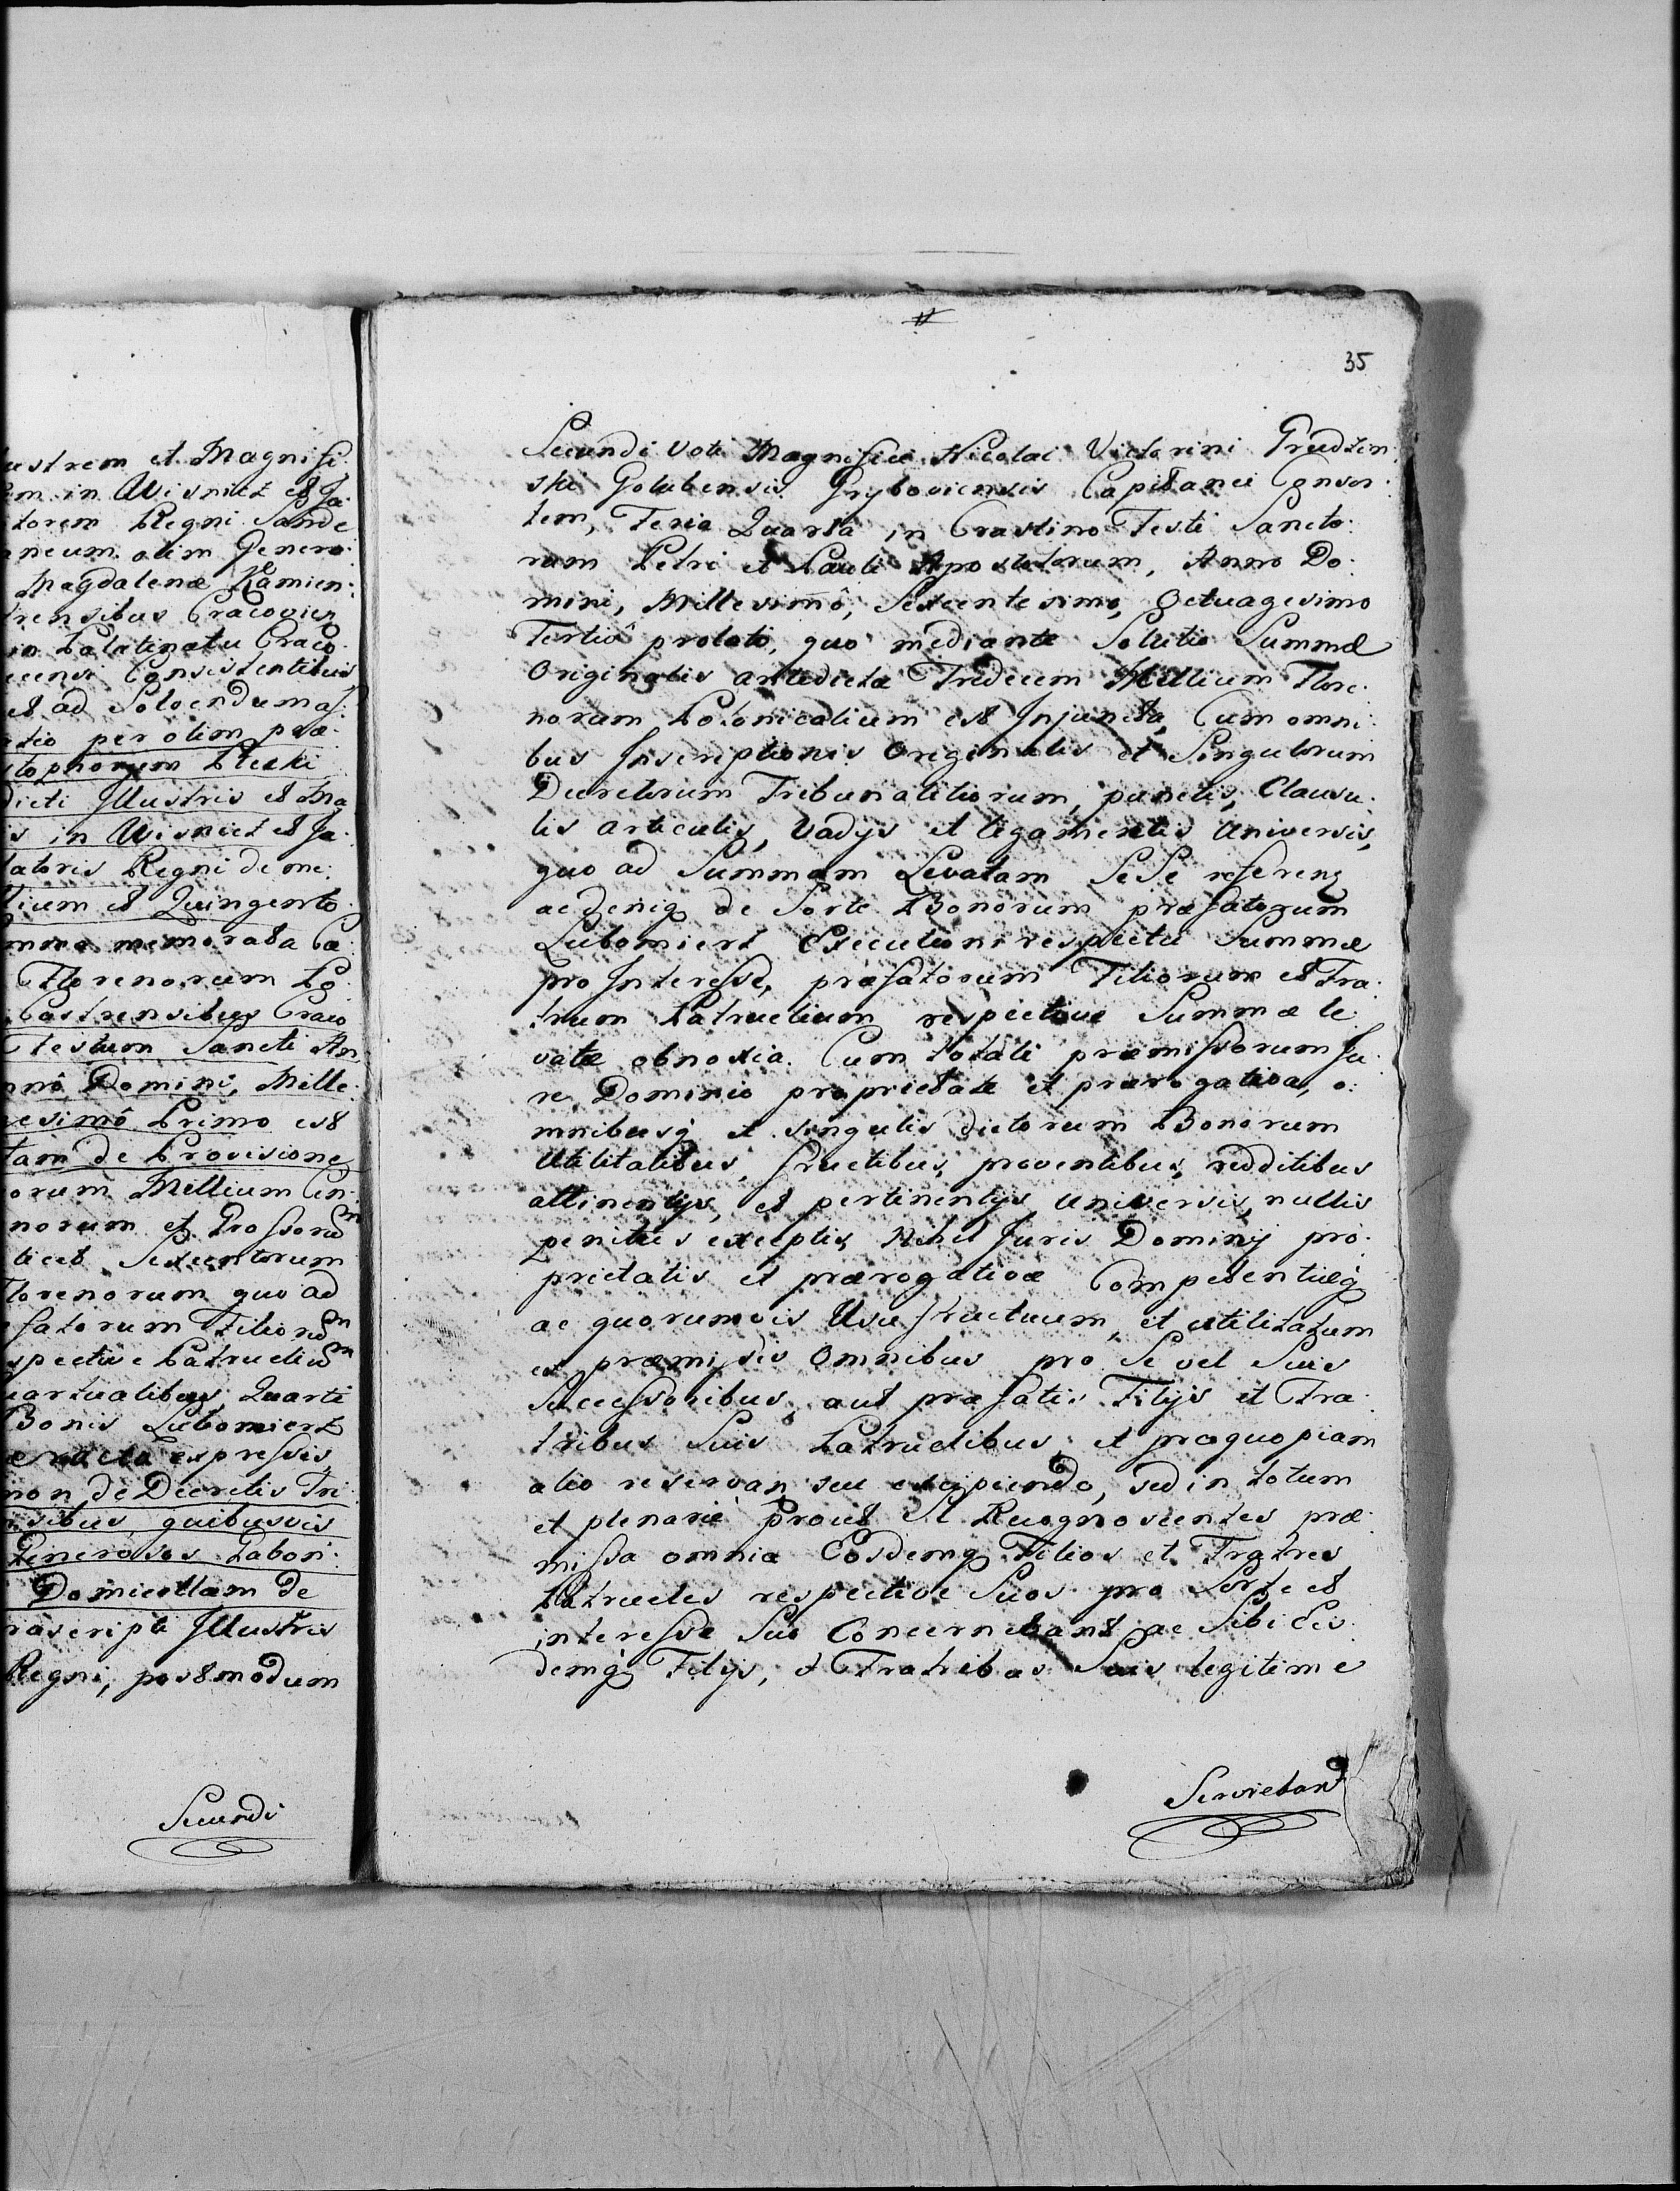 ustrem et Magnifi
em in Wisnicz et Ja
torem Regni Sande
aneum olim Genero
Magdalenæ Kamien:
trensibus Cracovien
in Palatinatu Craco
Consistentibus
et ad Solvendumas
per olim præ
stophorum
dicti Jllustris et Ma
is in Wisnicz et Ja
latoris Regni de me:
lium et Quingento
memorata
Florenorum Po
Castrensibus Craco
festum Sancti An
nnô Domini, Mille
esimô Primo est
tam de Provisione
orum Millium
norum et Grossoru
licet Sexcentorum
florenorum quo ad
fatorum Filioru
spective Patrueliu
uartualibus Quarti
Bonis Lubomierz
expressis
non de Decretis Tri
sibus quibusvis
Generosos Labori
Domicellam de
rascripti Jllustris
Regni, postmodum
Secundi
35
Secundi Voti Magnifici Nicolai Victorini Grudzin
ski Golubensis Gryboviensis Capitanei Consor:
tem, Feria Quarta in Crastino Festi Sancto:
rum Petri et Pauli Apostolorum, Anno Do:
mini, Millesimô, Sexcentesimo, Octuagesimo
Tertiô prolato, quo mediante Solutio Summæ
Originalis antedictæ Tredecim Millium Flore:
norum Polonicalium est Injuncta, Cum omni:
bus Inscriptionis Originalis et Singulorum
Decretorum Tribunalitiorum, punctis, Clausu:
lis articulis, Vadys et ligamentis Universis,
quo ad Summam Levatam SeSe referenq
ac deniq de Sorte Bonorum præfatorum
Lubomierz Executioni respectu Summæ
pro Interesse, præfatorum Filiorum et Fra:
trum Patruelium respective Summæ le
vatæ obnoxia. Cum totali præmissorum Ju:
re Dominio proprietate et prærogativa, o:
mnibusq et singulis dictorum Bonorum
Utilitatibus, fructibus, proventibus, redditibus
attinentys, et pertinentys Universis, nullis
penitus exceptis, Nihil Juris Dominij pro:
prietatis et prærogativæ Competentiæq
ac quorumvis Usu fructuum, et utilitatum
ex præmissis Omnibus pro Se vel Suis
Successoribus, aut præfatis Filijs et Fra:
tribus Suis Patruelibus, et proquopiam
alio reservan seu excipiendo, sed in totum
et plenariè prout et Recognoscentes præ:
missa omnia Eosdemq Filios et Fratres
Patrueles respective Suos pro Sorte et
interesse Suo Concernebant ac Sibi Eis:
demq Filys, et Fratribus Suis legitime
Serviebant